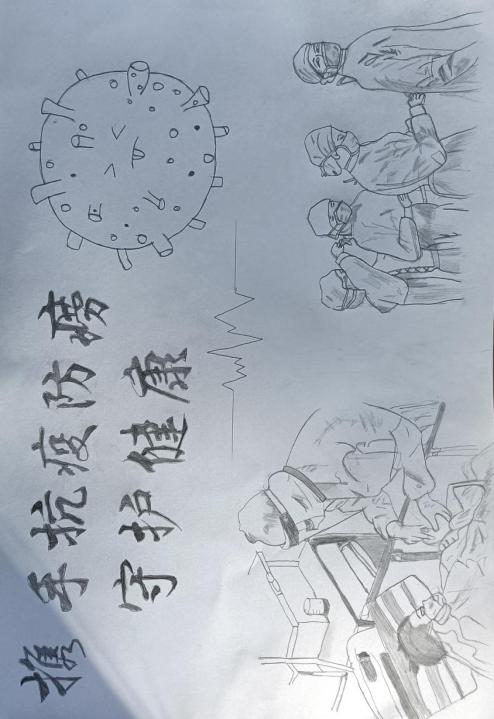 携手抗疫防痨
守护健康